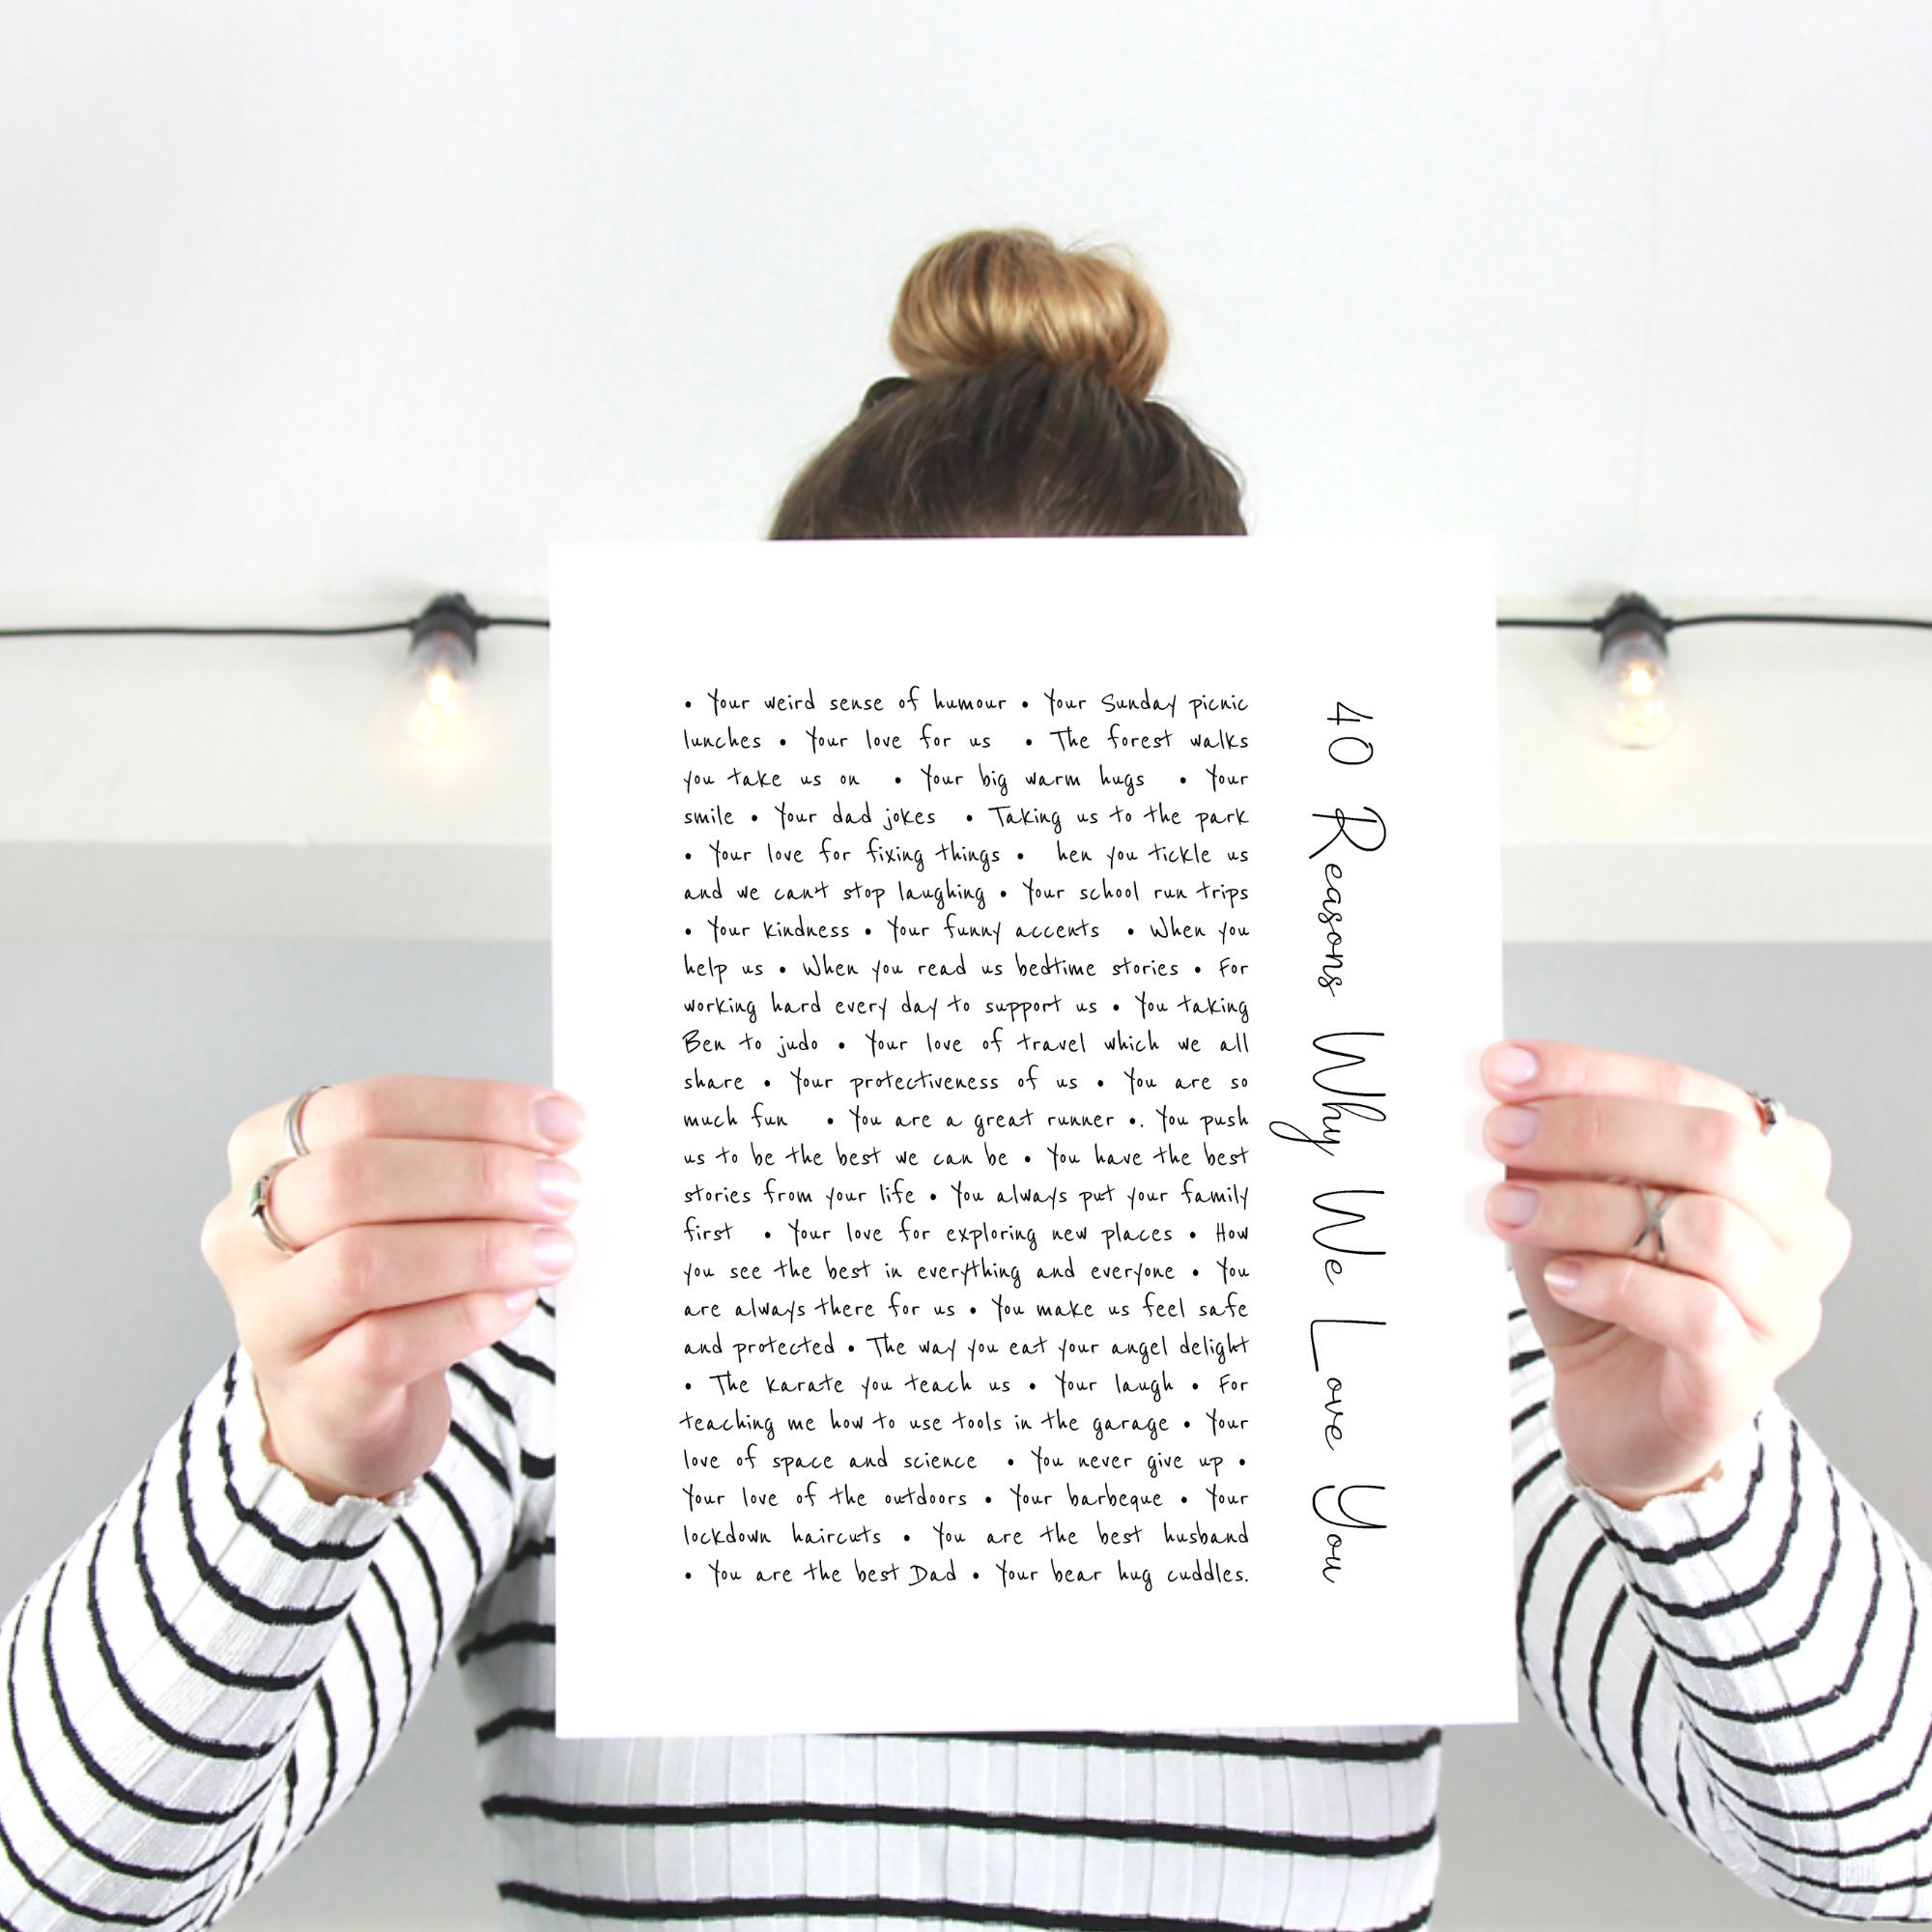 • Your weird sense of humour • Your Sunday picnic
lunches • Your love for us • The forest walks
you take us on • Your big warm hugs • Your
smile • Your dad jokes • Taking us to the park
• Your love for fixing things • hen you tickle us
and we can't stop laughing • Your school run trips
• Your kindness • Your funny accents • When you
help us • When you read us bedtime stories • For
working hard every day to support us • You taking
Ben to judo • Your love of travel which we all
share • Your protectiveness of us • You are so
much fun • You are a great runner •. You push
us to be the best we can be • You have the best
stories from your life • You always put your family
first • Your love for exploring new places • How
you see the best in everything and everyone • You
are always there for us • You make us feel safe
and protected • The way you eat your angel delight
• The karate you teach us • Your laugh • For
teaching me how to use tools in the garage • Your
love of space and science • You never give up •
Your love of the outdoors • Your barbeque • Your
lockdown haircuts • You are the best husband
• You are the best Dad • Your bear hug cuddles.
40 Reasons Why We Love You